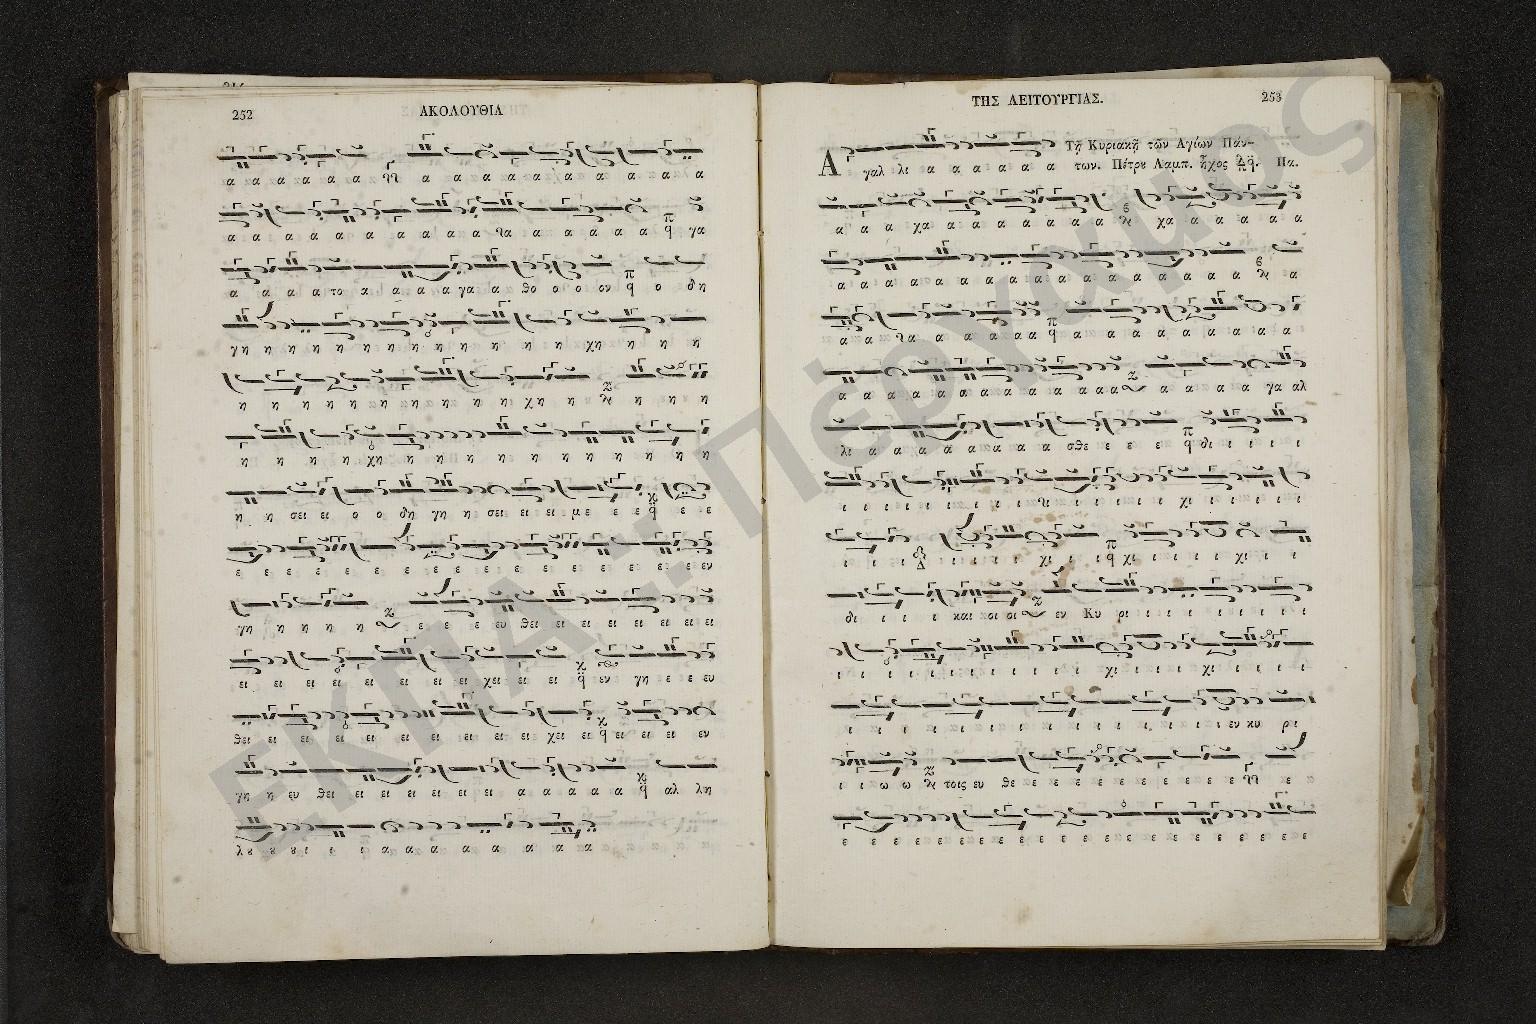 252
ΑΚΟΛΟΥΘΙΑ
α α α α α α α α α α α α α α α
α α α α α α α α α α α α α α α γα
α α α α το α α α α γα α α θο ο ο ον ο δη
γη η η η η η η η η η η η χη η η η
η η η η η η η η η η χη η η η η
η η η η χη η η η η η η η η η η η
η η σει ει ο ο δη γη η σει ει ει με ε ε ε ε
ε ε ε ε ε ε ε ε ε ε ε ε ε ε ε ε εν
γη η η η η ε ε ε ε ευ θει ει ει ει ει ει ει ει
ει ει ει ει ει ει ει χει ει ει εν γη ε ε ευ
θει ει ει ει ει ει ει ει ει ει χει ει ει ει ει εν
γη η ευ θει ει ει ει ει ει ει α α α α α αλ λη
λ ȣ ȣ ȣ ι ι α α α α α α α α
ΤΗΣ ΛΕΙΤΟΥΡΓΙΑΣ.
253
Τῇ Κυριακῇ τῶν Αγίων Πάν-
Α γαλ λι α α α α α α των. Πέτρȣ Λαμπ. ἦχος Πα.
α α α χα α α α α α α α χα α α α α α
α α α α α α α α α α α α α α α α α α α
α α α α α α α α α α α α α α α α α α
α α α α α α α α α α α α α α α α α α γα αλ
λι α α α α α α α α α σθε ε ε ε δι ι ι ι ι
ι ι ι ι ι ι ι ι ι ι ι ι ι χι ι ι ι ι
ι ι ι ι ι ι ι ι χι ι ι χι ι ι ι χι ι ι
δι ι ι ι και οι οι εν Κυ ρι ι ι ι ι ι ι ι
ι ι ι ι ι ι ι ι ι ι ι χι ι ι ι χι ι ι ι ι
ι ι ι ι ι ι ι ι ι ι ι ι ι ι ι εν κυ ρι
ι ι ω ω τοις ευ θε ε ε ε ε ε ε ε ε ε ε ε
ε ε ε ε ε ε ε ε ε ε ε ε ε ε ε ε ε ε ε
ΕΚΠΑ: Πέργαμος